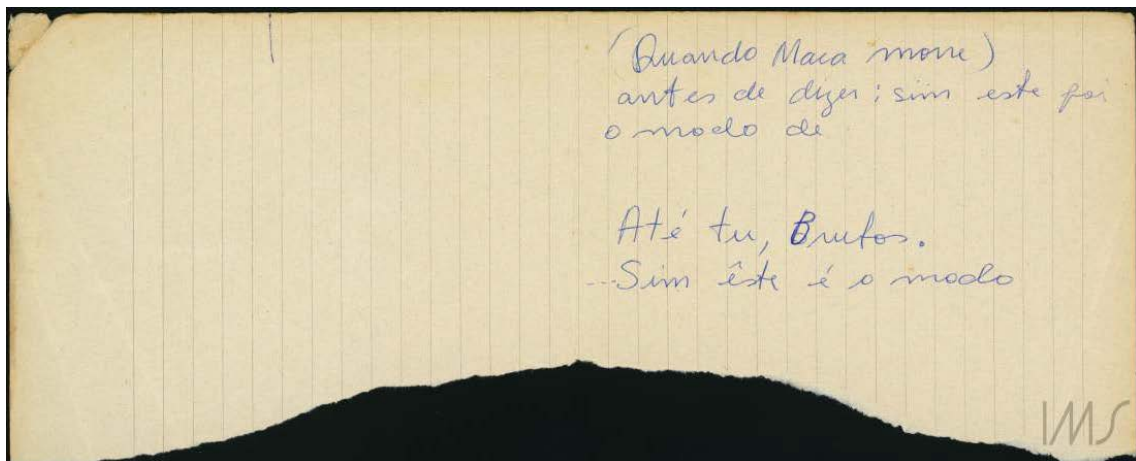 (Quando Maca morre)
antes de dizer: sim este foi
o modo de
Até tu, Brutos.
...Sim êste é o modo
IMS